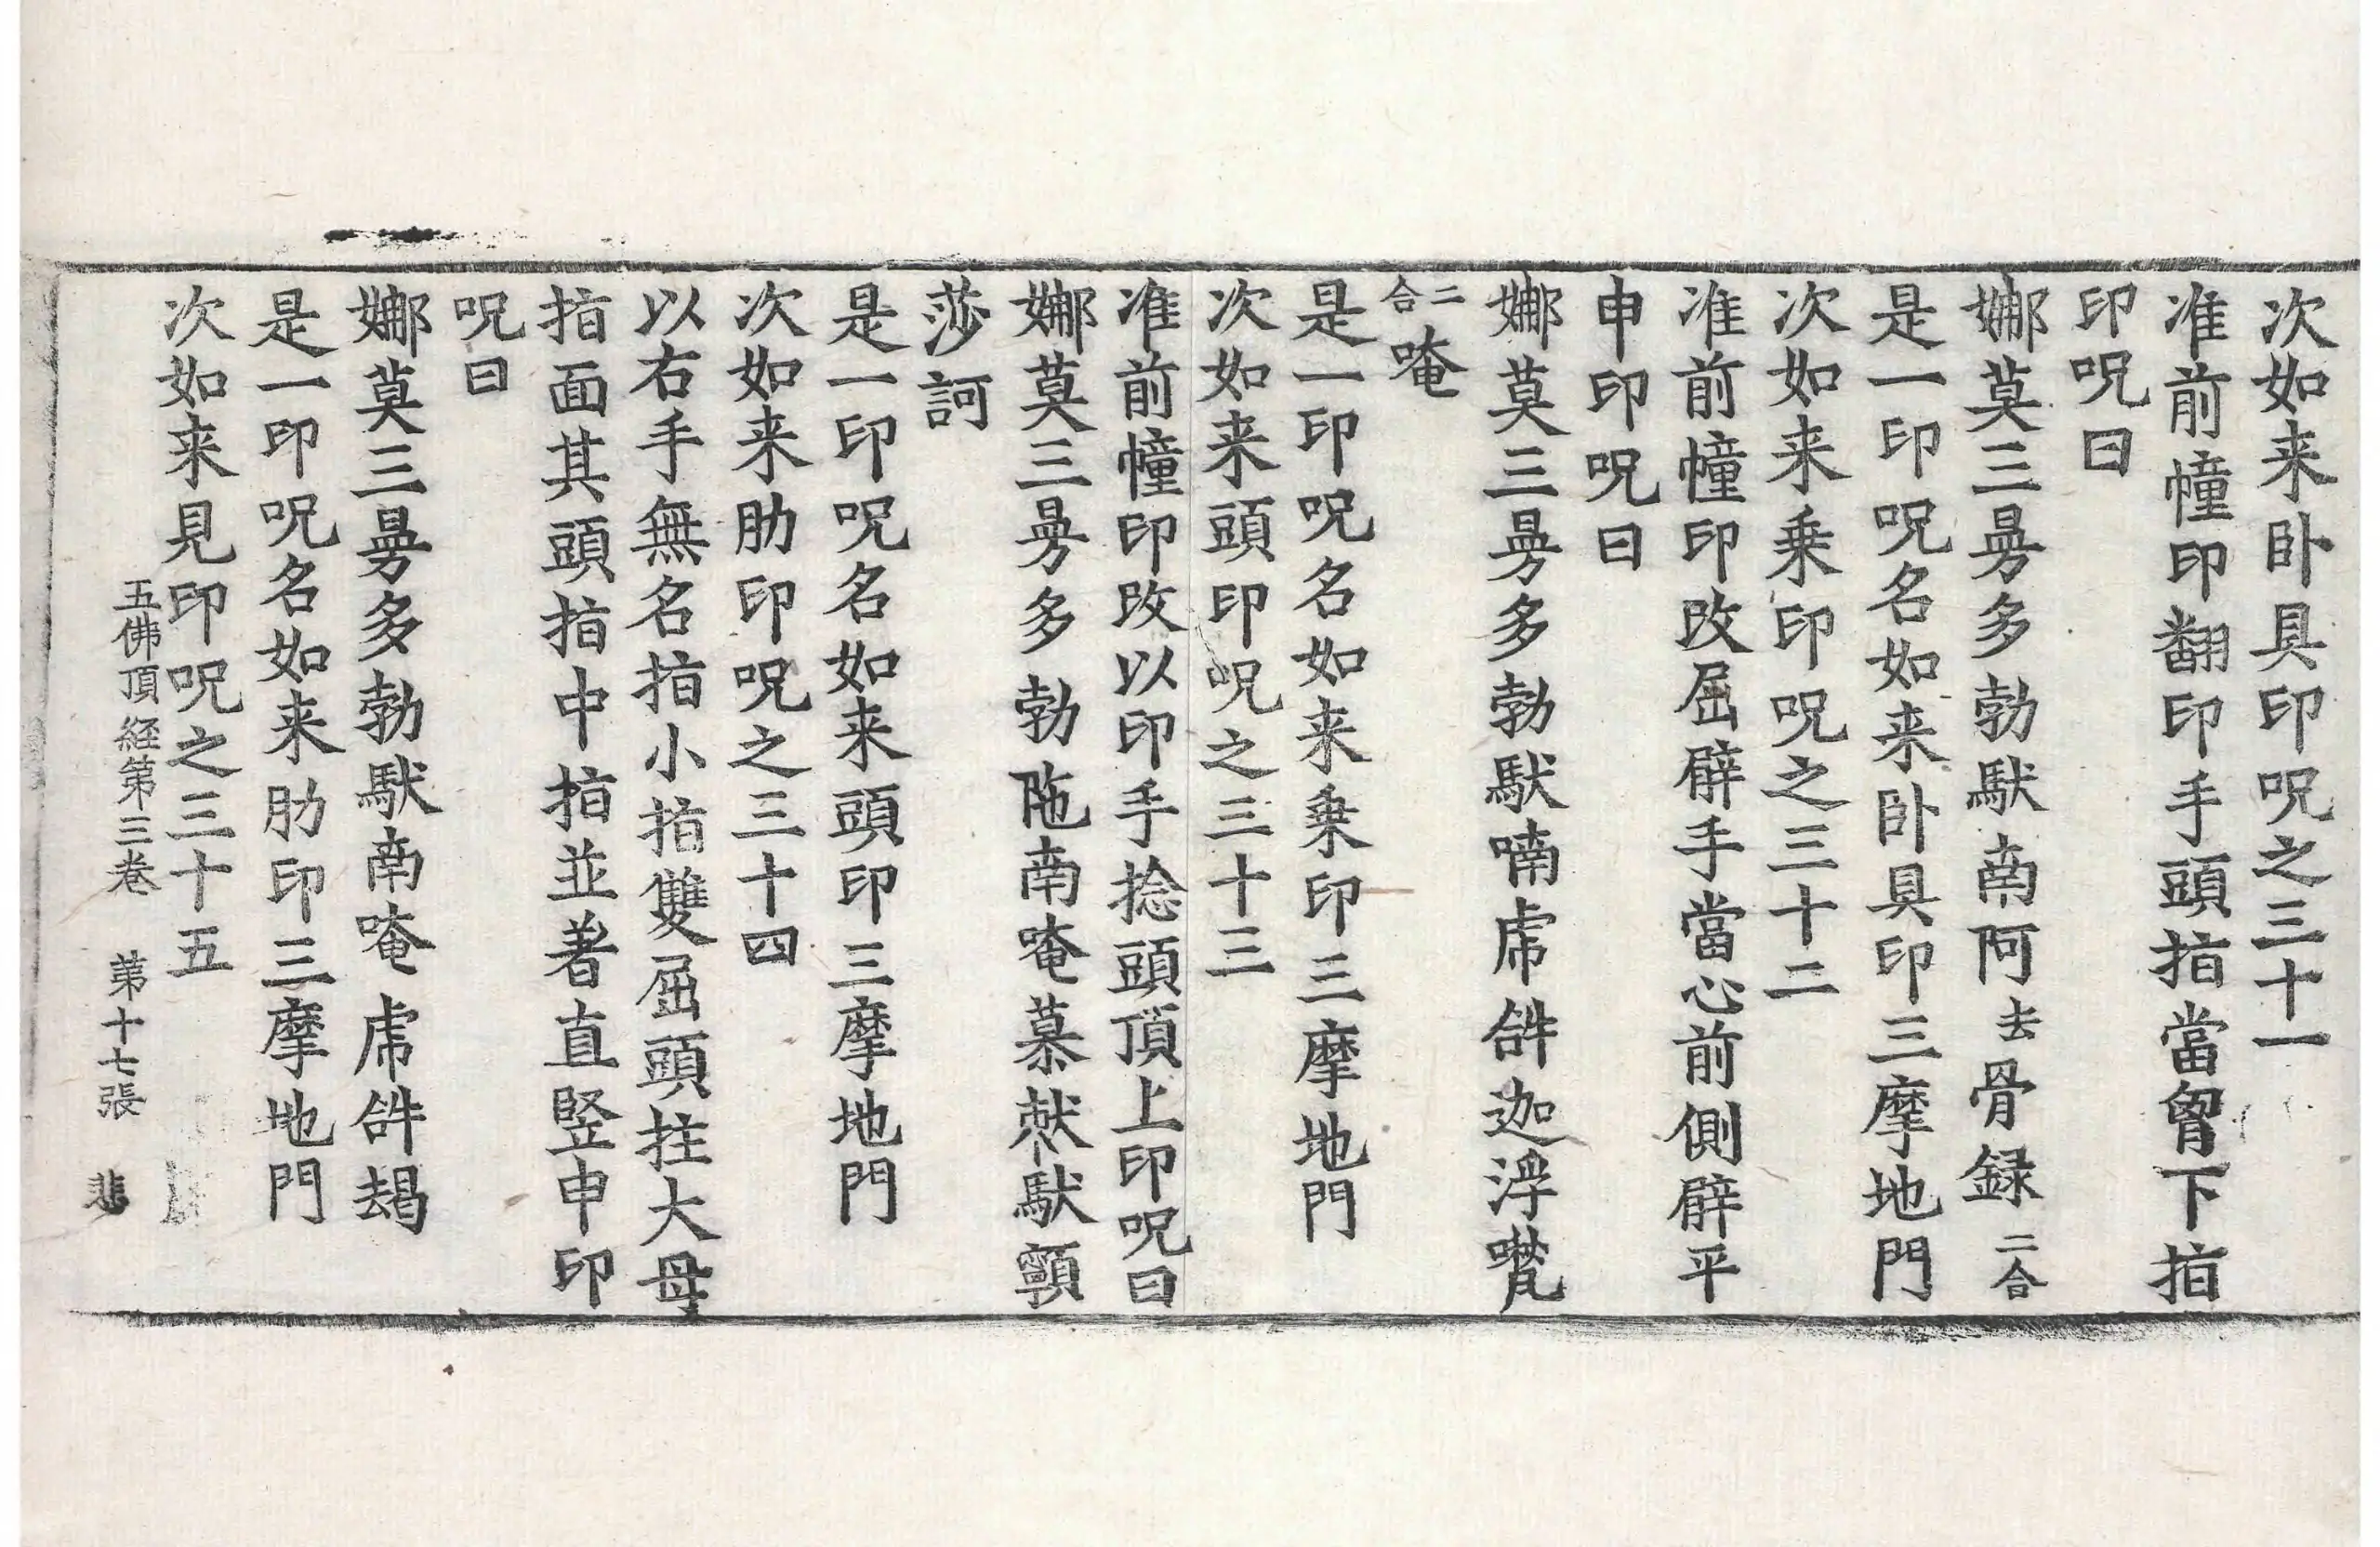 次如来卧具印呪之三十一
准前幢印翻印手頭指當𦚾下指
印呪曰
娜莫三曼多勃馱南阿去骨録二合
是一印呪名如来卧具印三摩地門
次如来乗印呪之三十二
准前幢印改屈臂手當心前側臂平
申印呪曰
娜莫三曼多勃馱喃虎𤙖迦浮
二合唵
是一印呪名如来乗印三摩地門
次如来頭印呪之三十三
准前幢印改以印手捻頭頂上印呪曰
娜莫三曼多勃陁南唵慕馱顐
莎訶
是一印呪名如来頭印三摩地門
次如来肋印呪之三十四
以右手無名指小指雙屈頭拄大母
指面其頭指中指並著直竪申印
呪曰
娜莫三曼多勃馱南唵虎𤙖朅
是一印呪名如来肋印三摩地門
次如来見印呪之三十五
五佛頂経第三巻 第十七張 悲